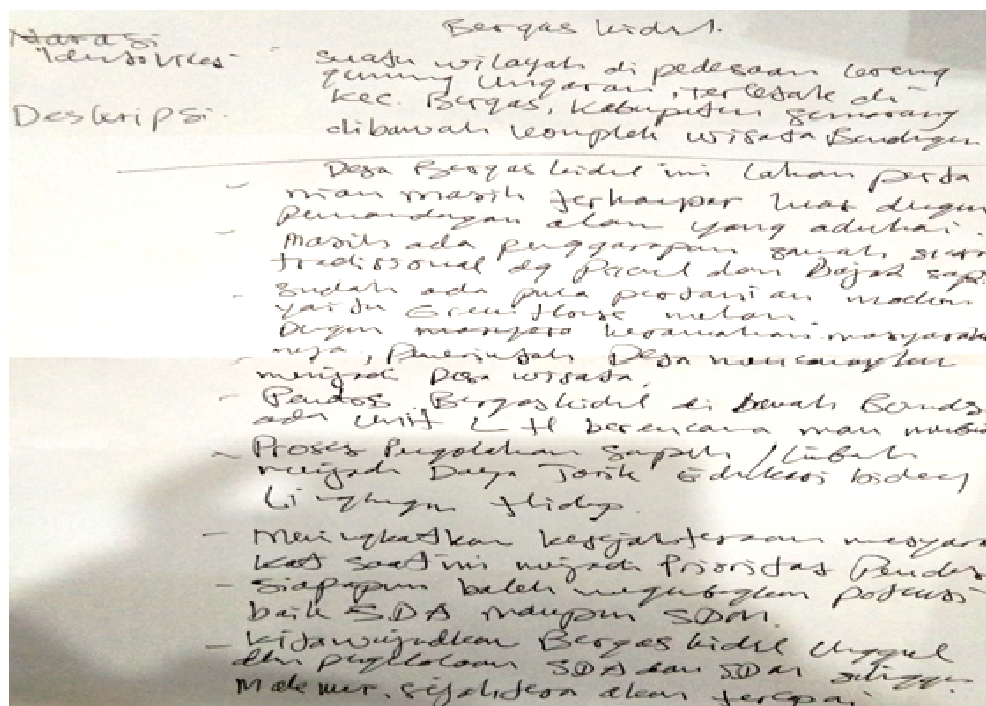 Bergas kidul.
Narasi
Identifikasi - suatu wilayah di pedesaan lereng
gunung Ungaran, terletak di
Kec. Bergas, Kabupaten Semarang
Deskripsi.
dibawah komplek wisata Bandungan
Desa Bergas kidul ini lahan perta
nian masih terhampar luas dengan
pemandangan alam yang aduhai.
Masih ada penggarapan sawah secara
tradisional dg Pacul dan Bajak sapi
- Sudah ada pula pertanian modern
yaitu Green House melon
Dengan keramahan masyarakat
nya, Pemerintah Desa mencanangkan
menjadi Desa wisata.
- Pemdes Bergas kidul di bawah
ada Unit LH berencana
- Proses Pengolahan Sampah / Limbah
menjadi Daya Tarik Edukasi bidang
Lingkungan Hidup.
- Meningkatkan kesejahteraan masyara
kat saat ini menjadi Prioritas Pemdes
- Siapapun boleh potensi
baik SDA maupun SDM.
- Kita wujudkan Bergas kidul Unggul
dlm pengelolaan SDA dan SDM sehingga
Makmur, sejahtera akan tercapai